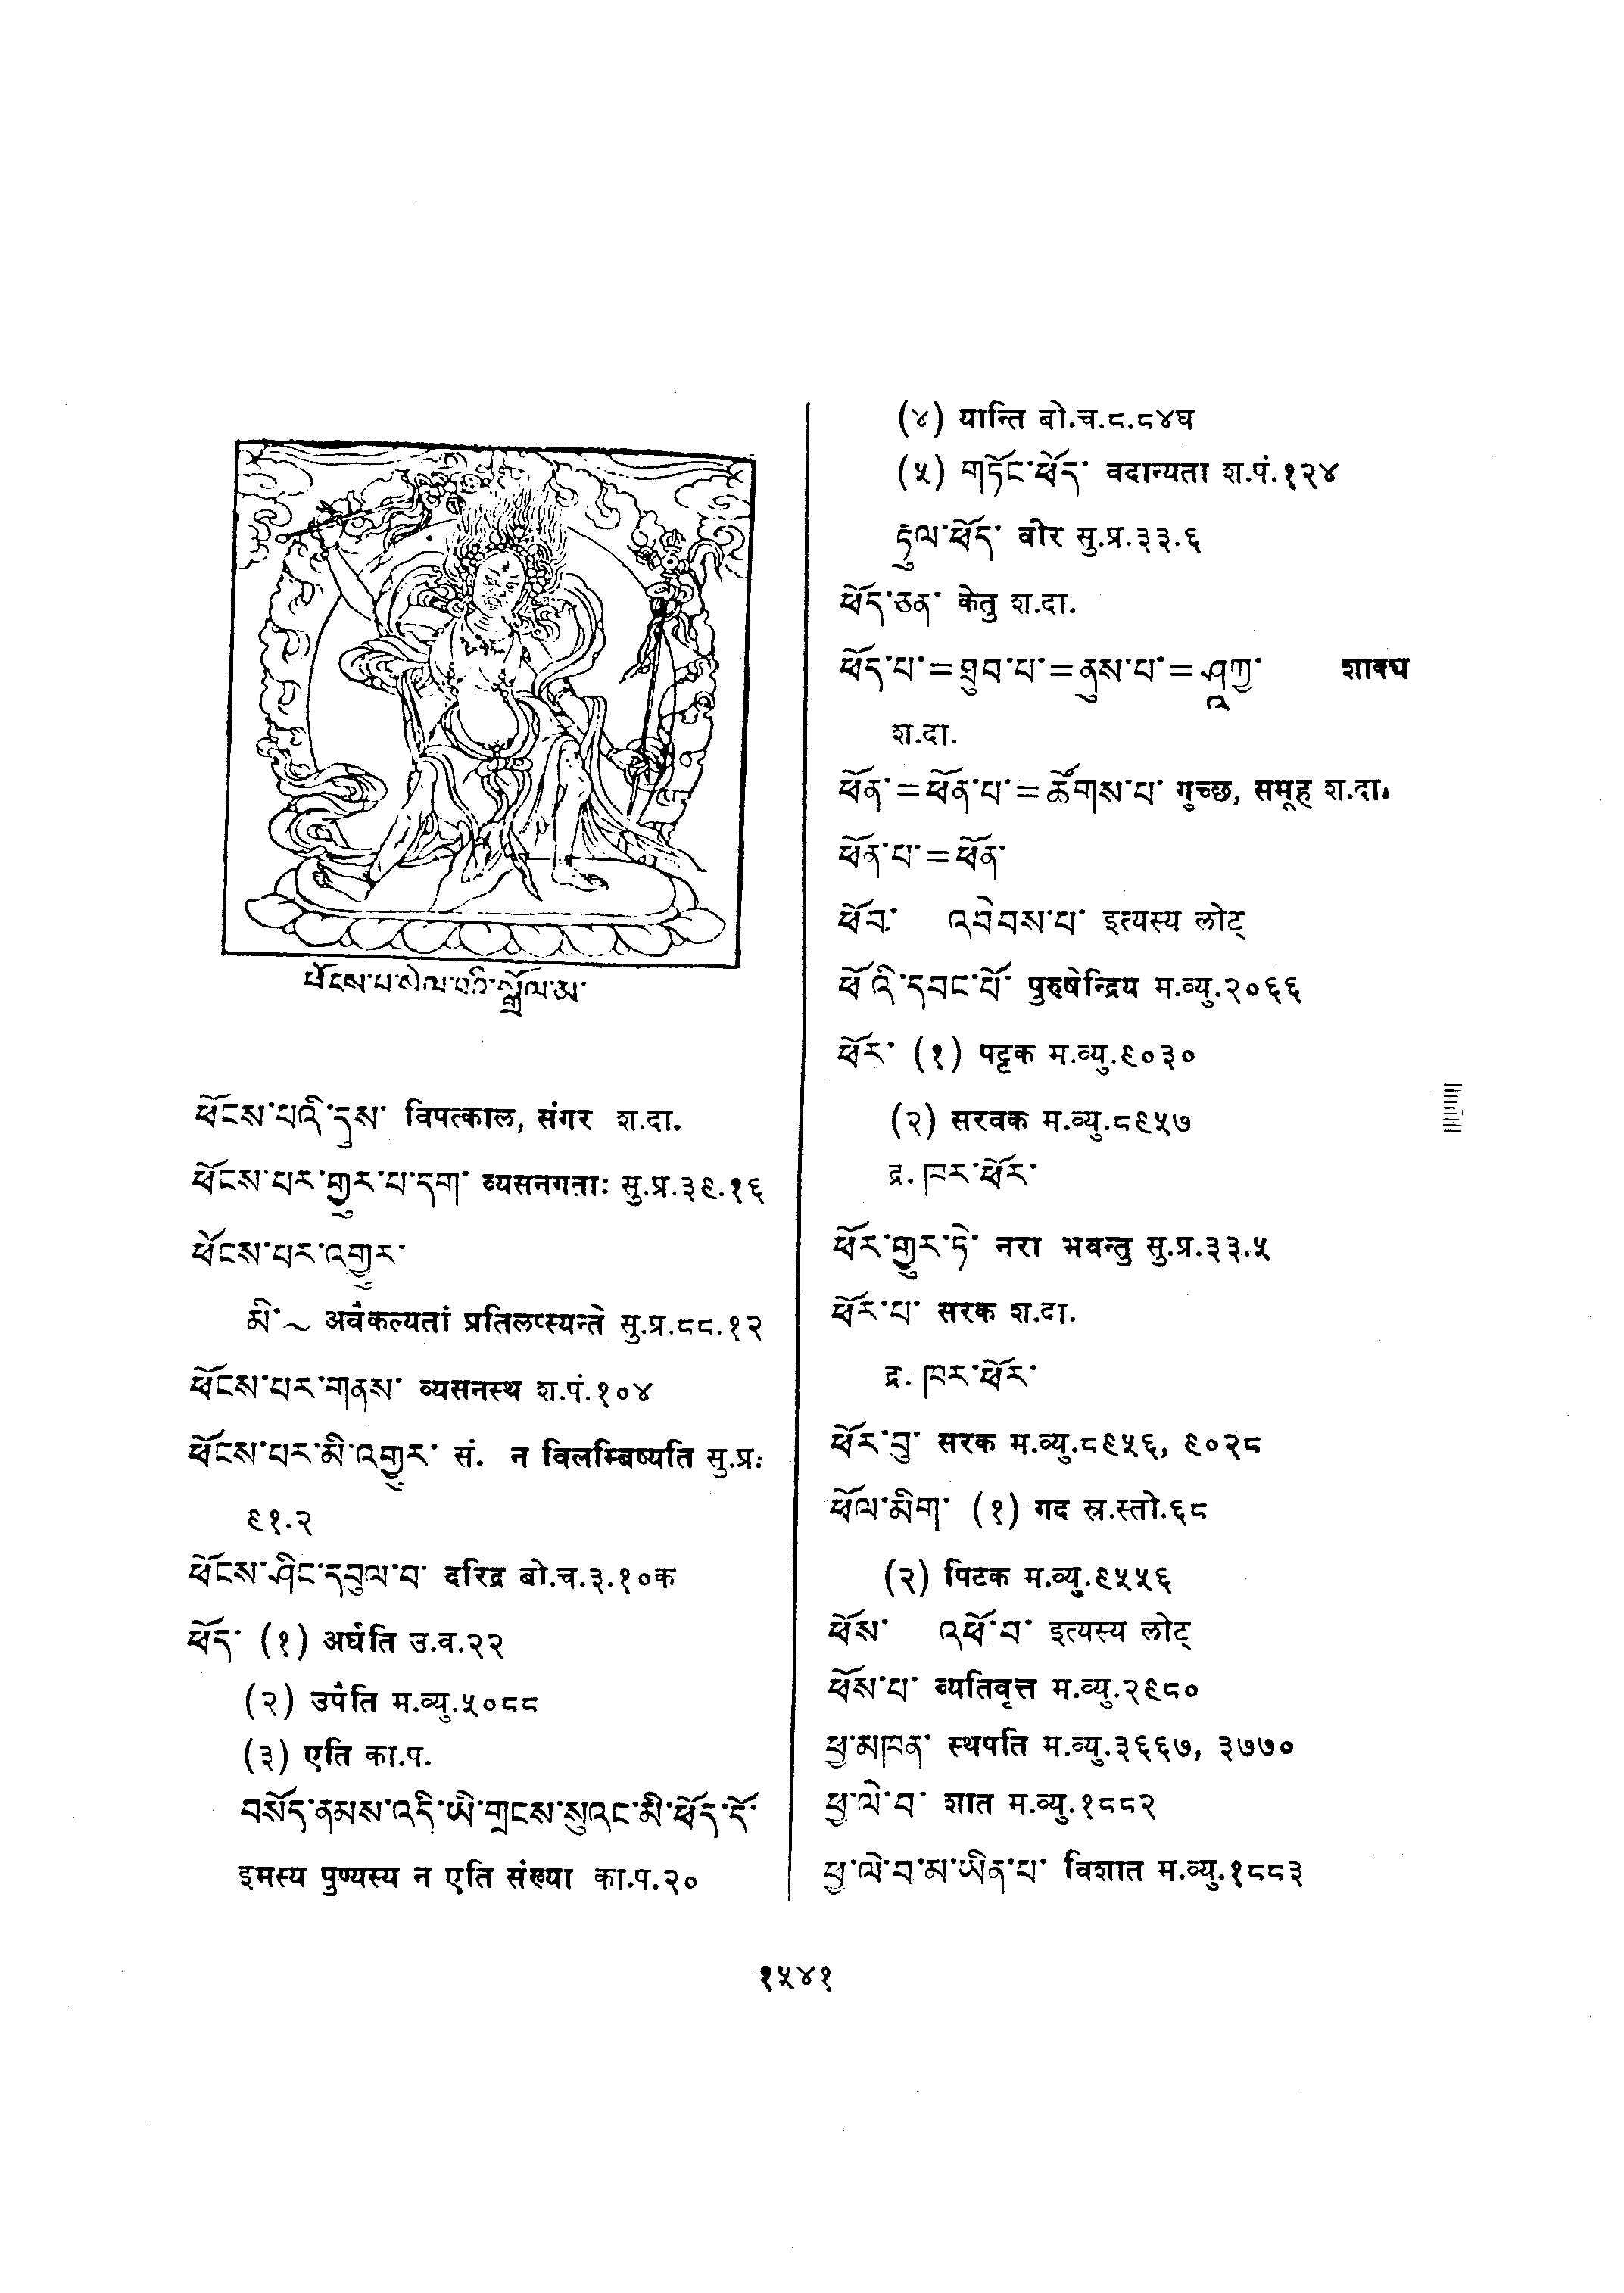 ཕོངས་པ་སེལ་བའི་སྒྲོལ་མ་
ཕོངས་པའི་དུས་ विपत्काल, संगर श.दा.
ཕོངས་པར་གྱུར་པ་དག་ व्यसनगताः सु.प्र.३९.१६
ཕོངས་པར་འགྱུར་
མི་ ~ अवैकल्यतां प्रतिलप्स्यन्ते सु.प्र.८८.१२
ཕོངས་པར་གནས་ व्यसनस्थ श.पं.१०४
ཕོངས་པར་མི་འགྱུར་ सं. न विलम्बिष्यति सु.प्र.
९१.२
ཕོངས་ཤིང་དབུལ་བ་ दरिद्र बो.च.३.१०क
ཕོད་ (१) अर्घति उ.व.२२
(२) उपैति म.व्यु.५०८८
(३) एति का.प.
བསོད་ནམས་འདི་ཡི་གྲངས་སུའང་མི་ཕོད་དོ་
इमस्य पुण्यस्य न एति संख्या का.प.२०
(४) यान्ति बो.च.८.८४घ
(५) གཏོང་ཕོད་ वदान्यता श.पं.१२४
དུལ་ཕོད་ वीर सु.प्र.३३.६
ཕོད་ཅན་ केतु श.दा.
ཕོད་པ་ = ཐུབ་པ་ = ནུས་པ་ = ཤཱཀྱ་ शाक्य
श.दा.
ཕོན་ = ཕོན་པ་ = ཚོགས་པ་ गुच्छ, समूह श.दा.
ཕོན་པ་ = ཕོན་
ཕོབ་ འབེབས་པ་ इत्यस्य लोट्
ཕོའི་དབང་པོ་ पुरुषेन्द्रिय म.व्यु.२०६६
ཕོར་ (१) पट्टक म.व्यु.९०३०
(२) सरवक म.व्यु.८९५७
द्र. ཁར་ཕོར་
ཕོར་གྱུར་ཏེ་ नरा भवन्तु सु.प्र.३३.५
ཕོར་པ་ सरक श.दा.
द्र. ཁར་ཕོར་
ཕོར་བུ་ सरक म.व्यु.८९५६, ९०२८
ཕོལ་མིག་ (१) गद स्र.स्तो.६८
(२) पिटक म.व्यु.९५५६
ཕོས་ འཕོ་བ་ इत्यस्य लोट्
ཕོས་པ་ व्यतिवृत्त म.व्यु.२९८०
ཕྱ་མཁན་ स्थपति म.व्यु.३६६७, ३७७०
ཕྱ་ལེ་བ་ शात म.व्यु.१८८२
ཕྱ་ལེ་བ་མ་ཡིན་པ་ विशात म.व्यु.१८८३
१५४१